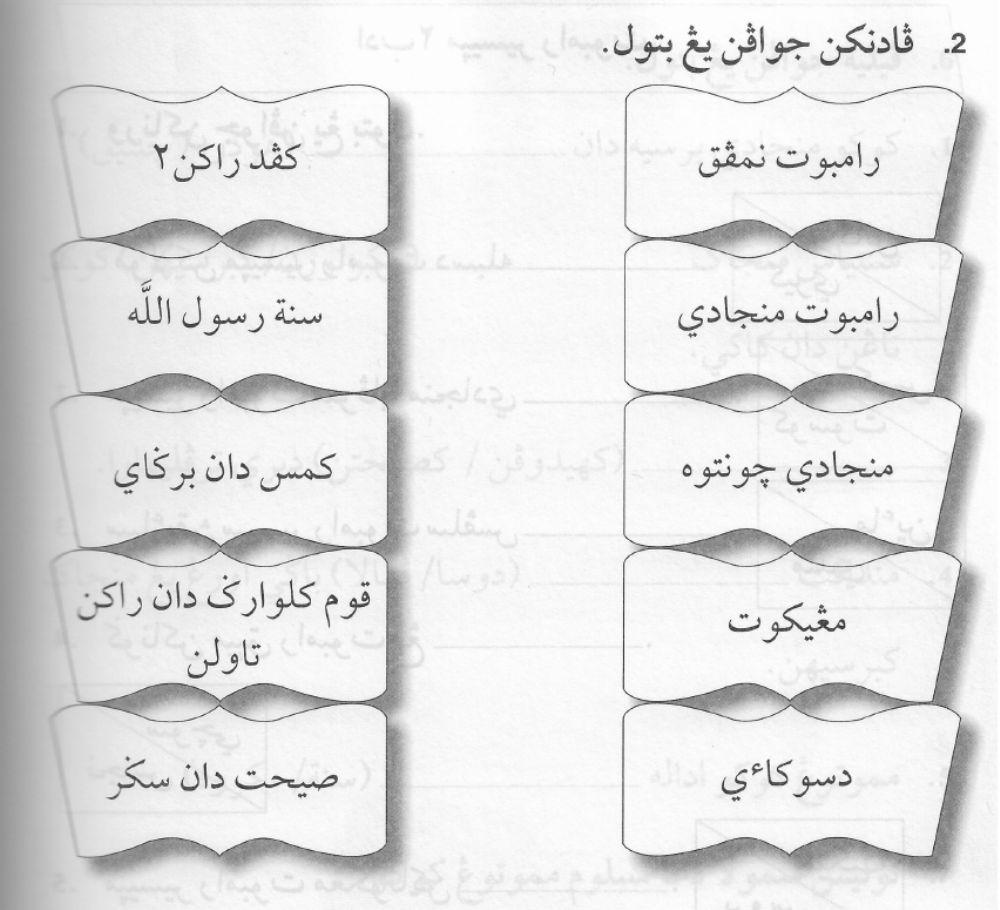 2. ڤادنكن جواڤن يڠ بتول.
رامبوت نمڤق
كڤد راكن٢
رامبوت منجادي
سنة رسول اللَّه
منجادي چونتوه
كمس دان برݢاي
مڠيكوت
قوم كلوارݢ دان راكن
تاولن
دسوكاءي
صيحت دان سݢر